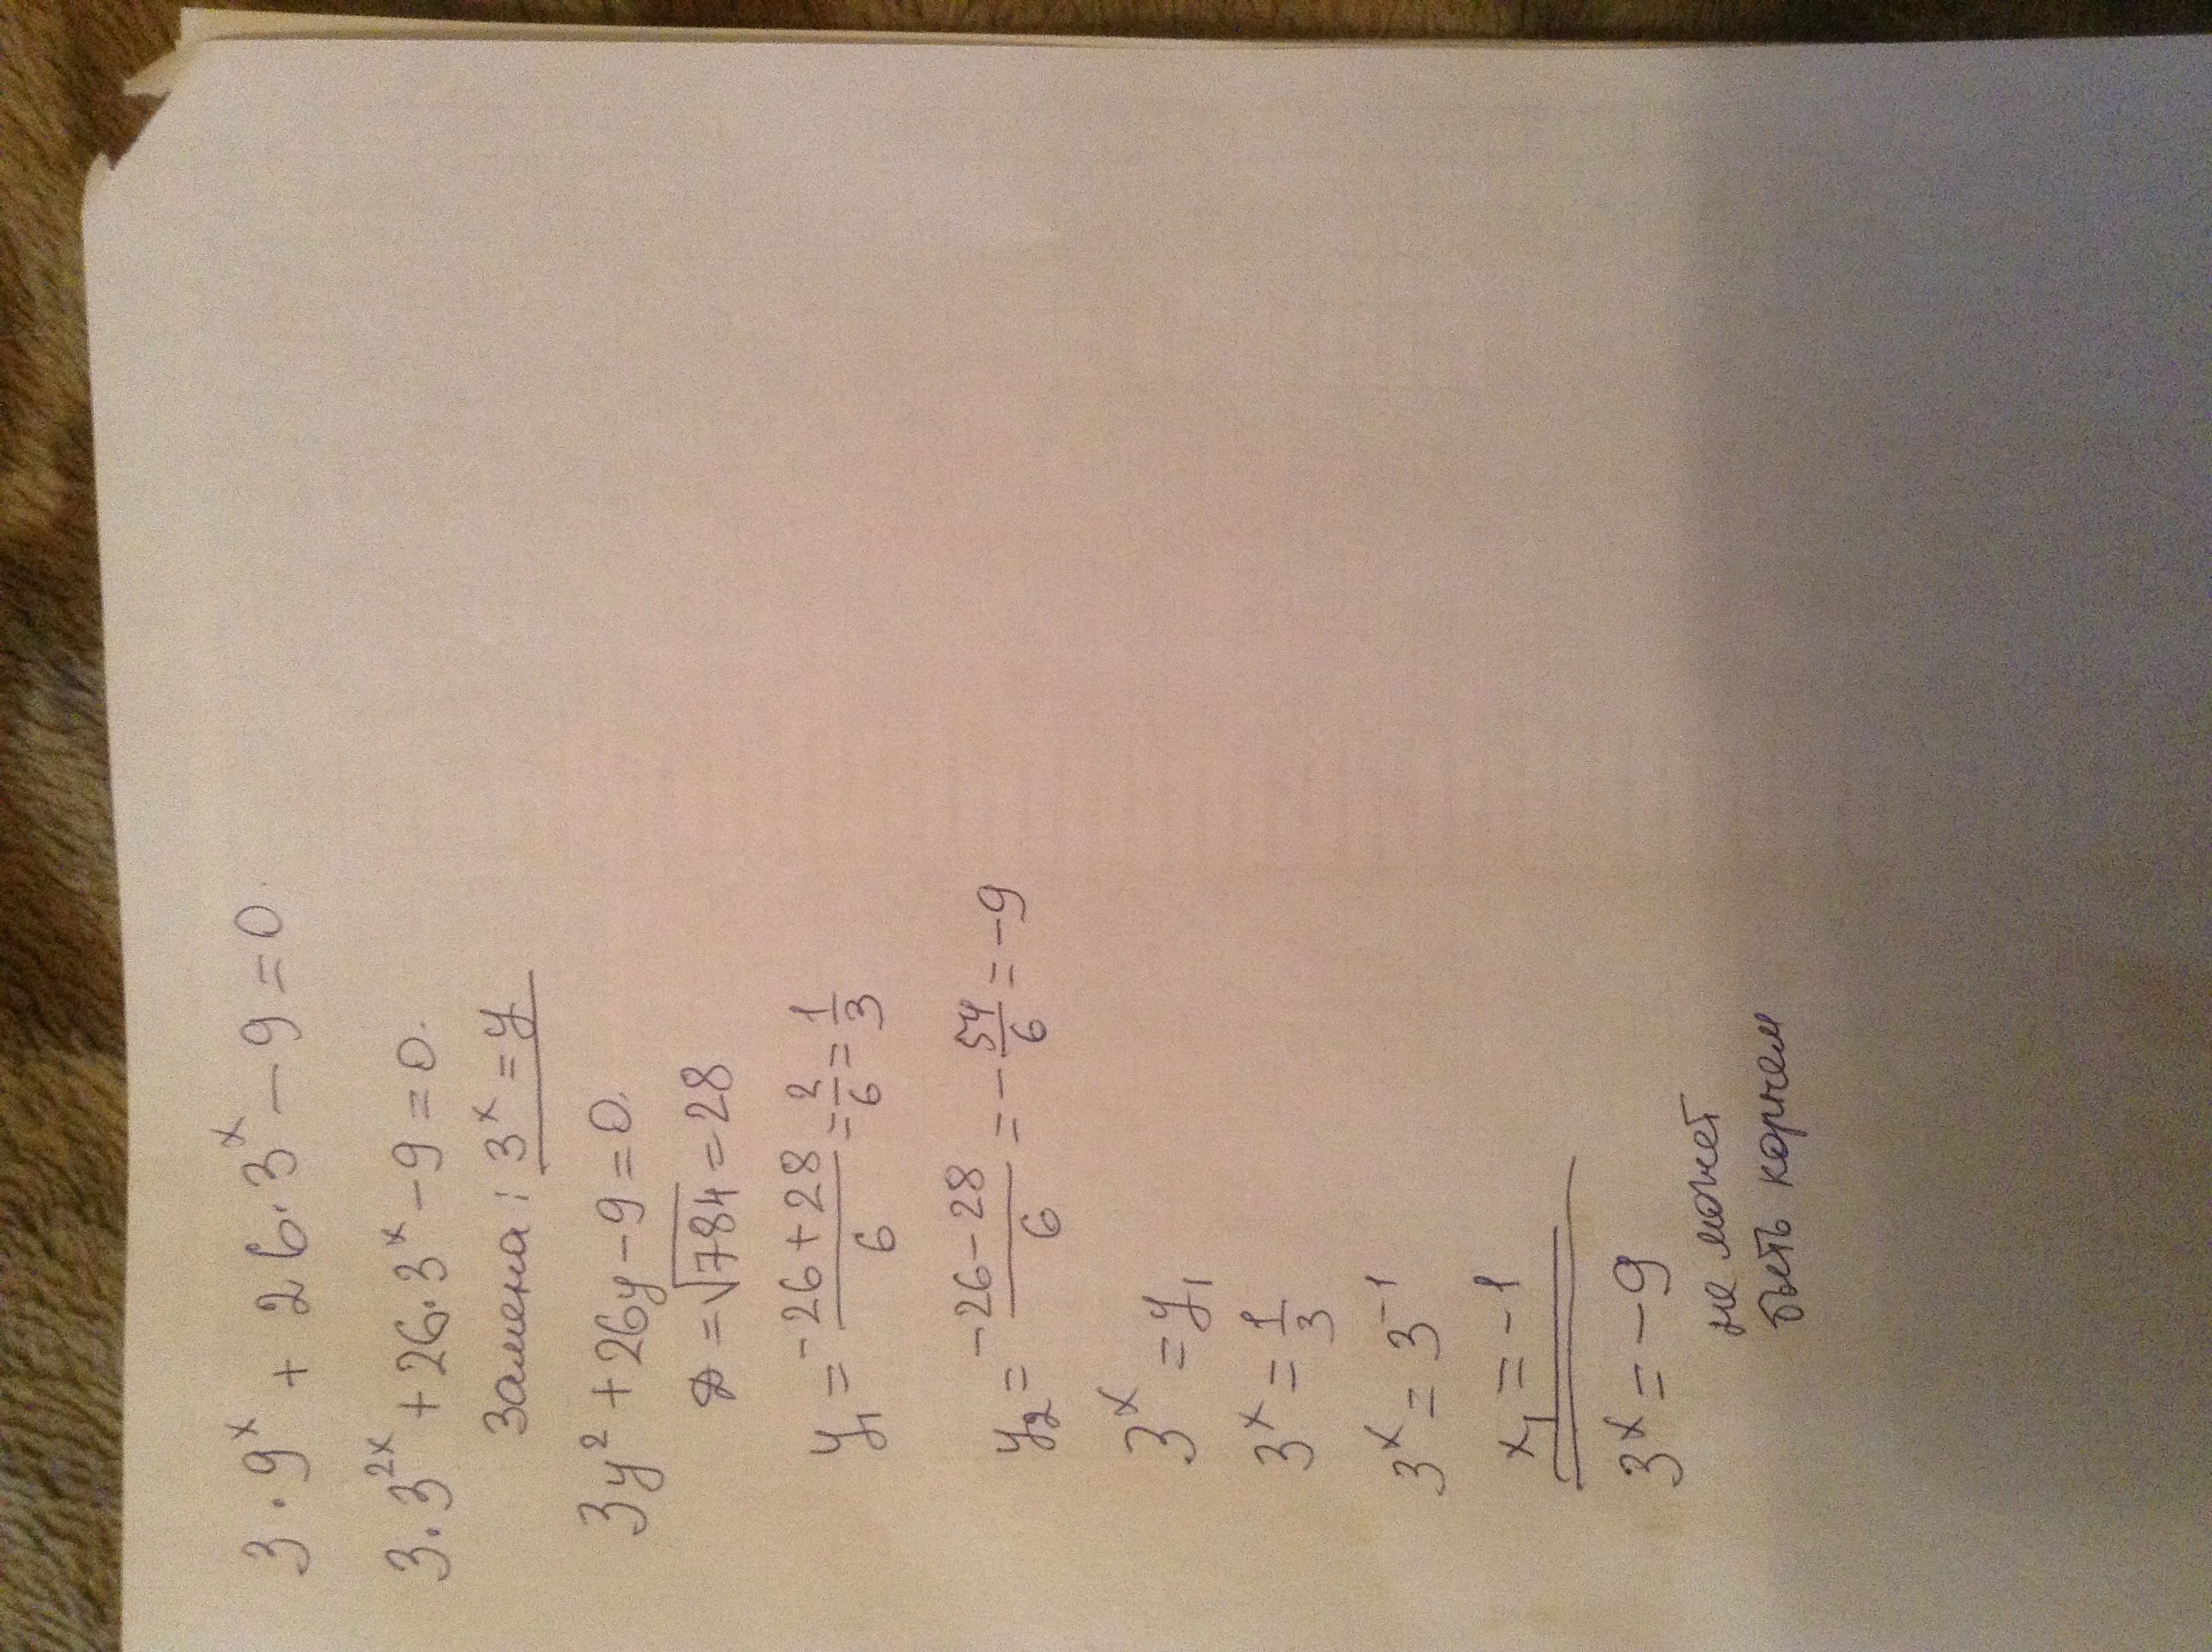 3·9ˣ + 26·3ˣ − 9 = 0.
3·3²ˣ + 26·3ˣ − 9 = 0.
Замена: 3ˣ = y
3y² + 26y − 9 = 0.
D = √784 = 28
y₁ = (−26 + 28)/6 = 2/6 = 1/3
y₂ = (−26 − 28)/6 = −54/6 = −9
3ˣ = y₁
3ˣ = 1/3
3ˣ = 3⁻¹
x₁ = −1
3ˣ = −9
не может
быть корнем